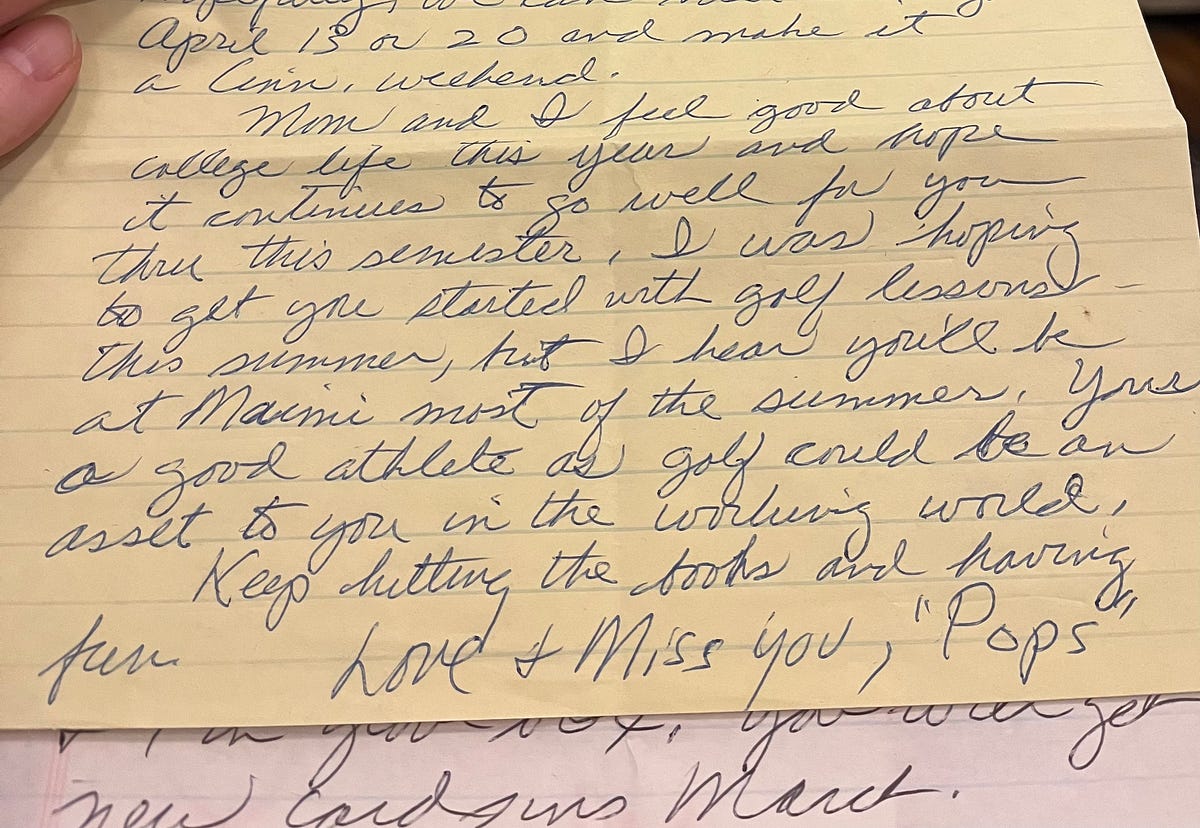 April 13 or 20 and make it
a Cinn. weekend.
Mom and I feel good about
college life this year and hope
it continues to go well for you
thru this semester, I was hoping
to get you started with golf lessons
this summer, but I hear you'll be
at Maimi most of the summer. Your
a good athlete as golf could be an
asset to you in the working world.
Keep hitting the books and having
fun Love & Miss you, "Pops"
in your box, you will get
new cards March.